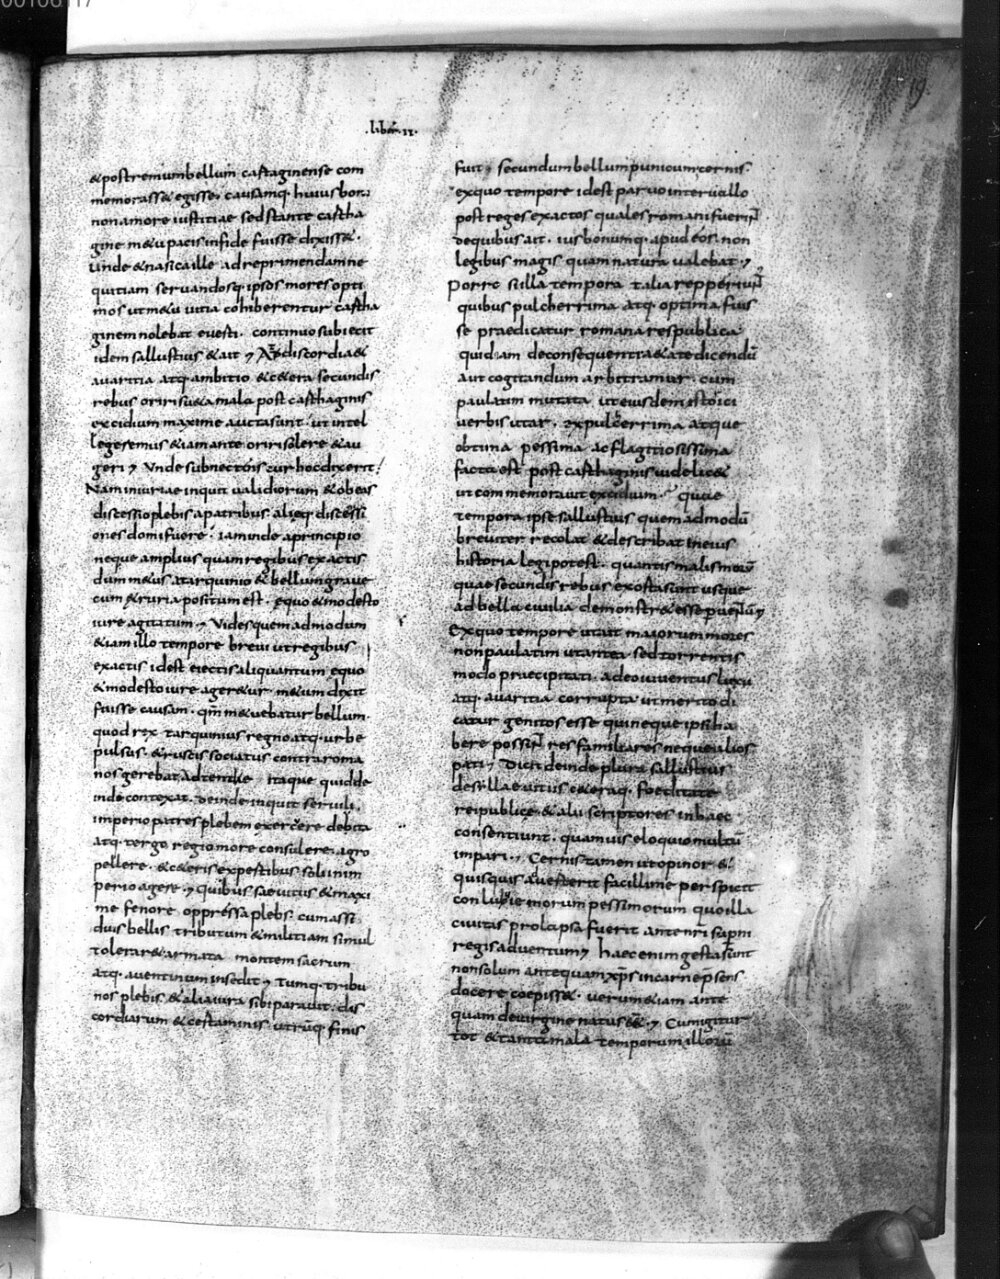 00106117
19
.liber.II.
& postremum bellum castaginense com
memorass& egisse. causamq. huius boni
non amore iustitiae sed stante castha
gine m&u pacis infide fuisse dixiss&.
unde & nasica ille ad reprimendam ne
quitiam servandosq. ipsos mores opti
mos ut m&u vitia cohiberentur castha
ginem nolebat everti. continuo subiecit
idem sallustius & ait At discordia &
avaritia atq. ambitio & c&era secundis
rebus oriri su&a mala post casthaginis
excidium maxime aucta sunt. ut intel
legeremus &iam ante oriri solere & au
geri Unde subnectens cur hoc dixerit
Nam iniuriae inquit validiorum & ob eas
discessio plebis a patribus aliaeq. discessi
ones domi fuore. iam inde a principio
neque amplius quam regibus exactis
dum m&us a tarquinio & bellum grave
cum &ruria positum est. equo & modesto
iure agitatum. Vides quemadmodum
&iam illo tempore brevi ut regibus
exactis id est eiectis aliquantum equo
& modesto iure ager&ur m&um dixit
fuisse causam. qm m&uebatur bellum.
quod rex tarquinius regno atq. urbe
pulsus & &ruscis sociatus contra roma
nos gerebat Adtende itaque quid de
inde contexat. deinde inquit servili
imperio patres plebem exercere de vita
atq. tergo regio more consulere. agro
pellere. & c&eris expestibus soli in im
perio agere. quibus saevitus & maxi
me fenore oppressa plebs. cum assi
duis bellis tributum & militiam simul
tolerar& armata montem sacrum
atq. aventinum insedit Tumq. tribu
nos plebis. & alia iura sibi paravit. dis
cordiarum & certaminis utriusq. finis
fuit secundum bellum punicum cernis
ex quo tempore id est parvo intervallo
post reges exactos quales romani fuerint
de quibus ait. ius bonumq. apud eos. non
legibus magis quam natura valebat
Porro si illa tempora talia repperiunt
quibus pulcherrima atq. optima fuis
se praedicatur romana respublica
quid iam de consequenti a&ate dicendū
aut cogitandum arbitramur. cum
paulatim mutata ut eiusdem istorici
verbis utar. ex pulcerrima atque
obtima pessima ac flagitiosissima
facta est post casthaginis videlic&
ut commemoravit excidium. quae
tempora ipse sallustius quemadmodū
breviter recolat & describat in eius
historia legi potest. quantis malis morū
quae secundis rebus exorta sunt usque
ad bella civilia demonstr& esse perventū
Ex quo tempore ut ait maiorum mores
non paulatim ut antea sed torrentis
modo praecipitati. adeo iuventus luxu
atq. avaritia corrupta ut merito di
catur genitos esse qui neque ipsi ha
bere possent res familiares neque alios
pati Dicit deinde plura sallustius
de sillae vitiis c&eraq. foeditate
rei publice & alii scriptores in haec
consentiunt. quamvis eloquio multū
impari. Cernis tamen ut opinor &
quisquis adverterit facillime perspicit
conluvie morum pessimorum quo illa
civitas prolapsa fuerit ante nri superni
regis adventum haec enim gesta sunt
non solum antequam xps in carne psens
docere coepiss&. verum &iam ante
quam de virgine natus ess& Cum igitur
tot & tanta mala temporum illorū